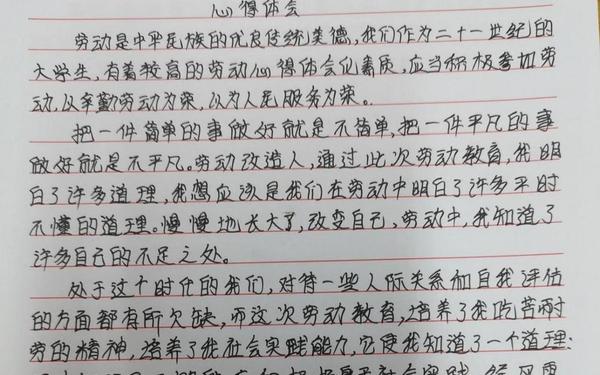 心得体会
劳动是中华民族的优良传统美德,我们作为二十一世纪的
大学生,有着较高的劳动心得体会化素质,应当积极参加劳
动,以辛勤劳动为荣,以为人民服务为荣。
把一件简单的事做好就是不简单,把一件平凡的事
做好就是不平凡。劳动改造人,通过此次劳动教育,我明
白了许多道理,我想应该是我们在劳动中明白了许多平时
不懂的道理。慢慢地长大了,改变自己,劳动中,我知道了
许多自己的不足之处。
处于这个时代的我们,对待一些人际关系和自我评估
的方面都有所欠缺,而这次劳动教育,培养了我吃苦耐
劳的精神,培养了我社会实践能力,它使我知道了一个道理: